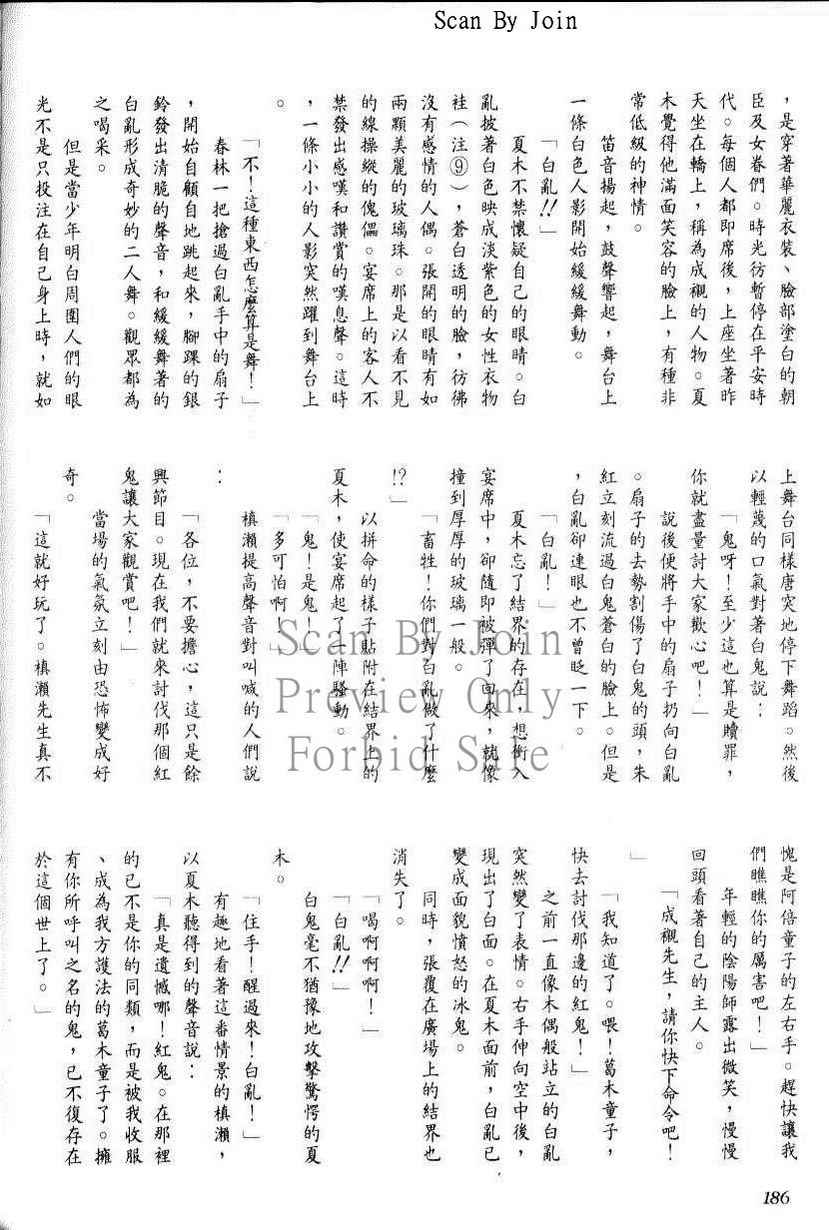 Scan By Join
，是穿著華麗衣裝、臉部塗白的朝
臣及女眷們。時光彷暫停在平安時
代。每個人都即席後，上座坐著昨
天坐在轎上，稱為成襯的人物。夏
木覺得他滿面笑容的臉上，有種非
常低級的神情。
笛音揚起，鼓聲響起，舞台上
一條白色人影開始緩緩舞動。
「白亂!!」
夏木不禁懷疑自己的眼睛。白
亂披著白色映成淡紫色的女性衣物
袿（注⑨），蒼白透明的臉，彷彿
沒有感情的人偶。張開的眼睛有如
兩顆美麗的玻璃珠。那是以看不見
的線操縱的傀儡。宴席上的客人不
禁發出感嘆和讚賞的嘆息聲。這時
，一條小小的人影突然躍到舞台上
。
「不！這種東西怎麼算是舞！」
春林一把搶過白亂手中的扇子
，開始自顧自地跳起來，腳踝的銀
鈴發出清脆的聲音，和緩緩舞著的
白亂形成奇妙的二人舞。觀眾都為
之喝采。
但是當少年明白周圍人們的眼
光不是只投注在自己身上時，就如
上舞台同樣唐突地停下舞蹈。然後
以輕蔑的口氣對著白鬼說：
「鬼呀！至少這也算是贖罪，
你就盡量討大家歡心吧！」
說後便將手中的扇子扔向白亂
。扇子的去勢割傷了白鬼的頭，朱
紅立刻流過白鬼蒼白的臉上。但是
，白亂卻連眼也不曾眨一下。
「白亂！」
夏木忘了結界的存在，想衝入
宴席中，卻隨即被彈了回來，就像
撞到厚厚的玻璃一般。
「畜牲！你們對白亂做了什麼
!?」
以拼命的樣子貼附在結界上的
夏木，使宴席起了一陣騷動。
「鬼！是鬼！」
「多可怕啊！」
槙瀨提高聲音對叫喊的人們說
：
「各位，不要擔心，這只是餘
興節目。現在我們就來討伐那個紅
鬼讓大家觀賞吧！」
當場的氣氛立刻由恐怖變成好
奇。
「這就好玩了。槙瀨先生真不
愧是阿倍童子的左右手。趕快讓我
們瞧瞧你的厲害吧！」
年輕的陰陽師露出微笑，慢慢
回頭看著自己的主人。
「成襯先生，請你快下命令吧！
」
「我知道了。喂！葛木童子，
快去討伐那邊的紅鬼！」
之前一直像木偶般站立的白亂
突然變了表情。右手伸向空中後，
現出了白面。在夏木面前，白亂已
變成面貌憤怒的冰鬼。
同時，張覆在廣場上的結界也
消失了。
「喝啊啊啊！」
「白亂!!」
白鬼毫不猶豫地攻擊驚愕的夏
木。
「住手！醒過來！白亂！」
有趣地看著這番情景的槙瀨，
以夏木聽得到的聲音說：
「真是遺憾哪！紅鬼。在那裡
的已不是你的同類，而是被我收服
、成為我方護法的葛木童子了。擁
有你所呼叫之名的鬼，已不復存在
於這個世上了。」
Scan By Join
Preview Only
Forbid Sale
186